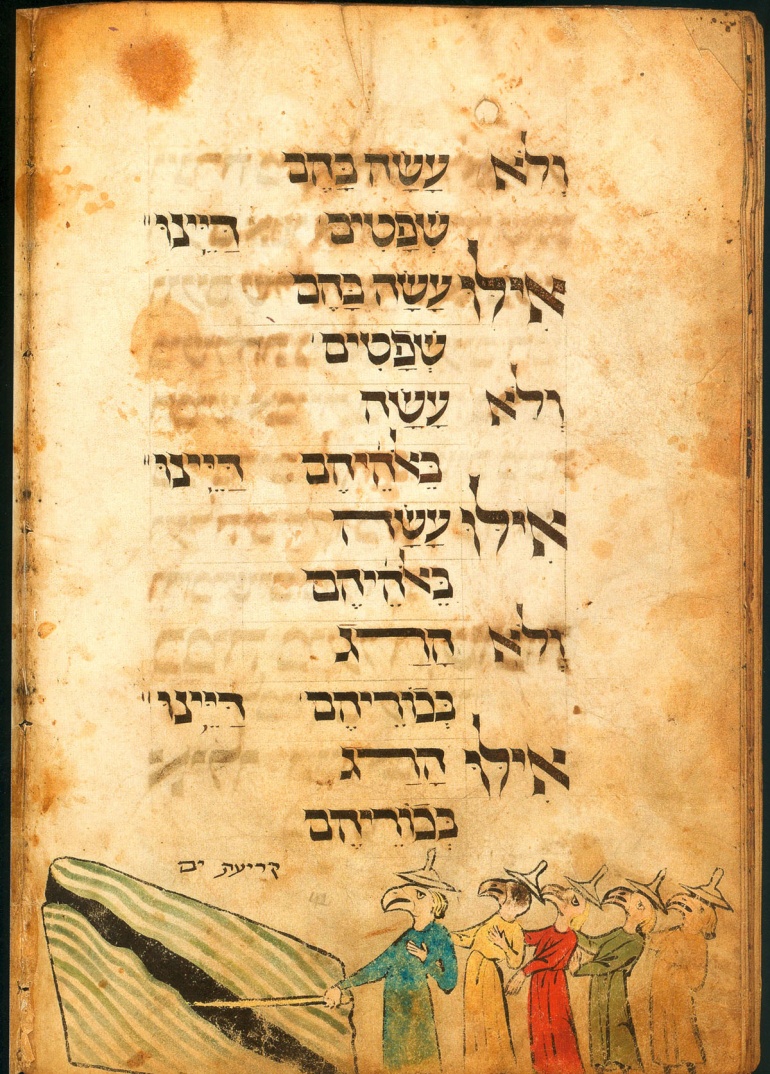 וְלֹא עָשָׂה בָּהֶם
שְׁפָטִים דַּיֵּינוּ
אִילוּ עָשָׂה בָּהֶם
שְׁפָטִים
וְלֹא עָשָׂה
בֵּאלֹהֵיהֶם דַּיֵּינוּ
אִילוּ עָשָׂה
בֵּאלֹהֵיהֶם
וְלֹא הָרַג
בְּכוֹרֵיהֶם דַּיֵּינוּ
אִילוּ הָרַג
בְּכוֹרֵיהֶם
קריעת ים